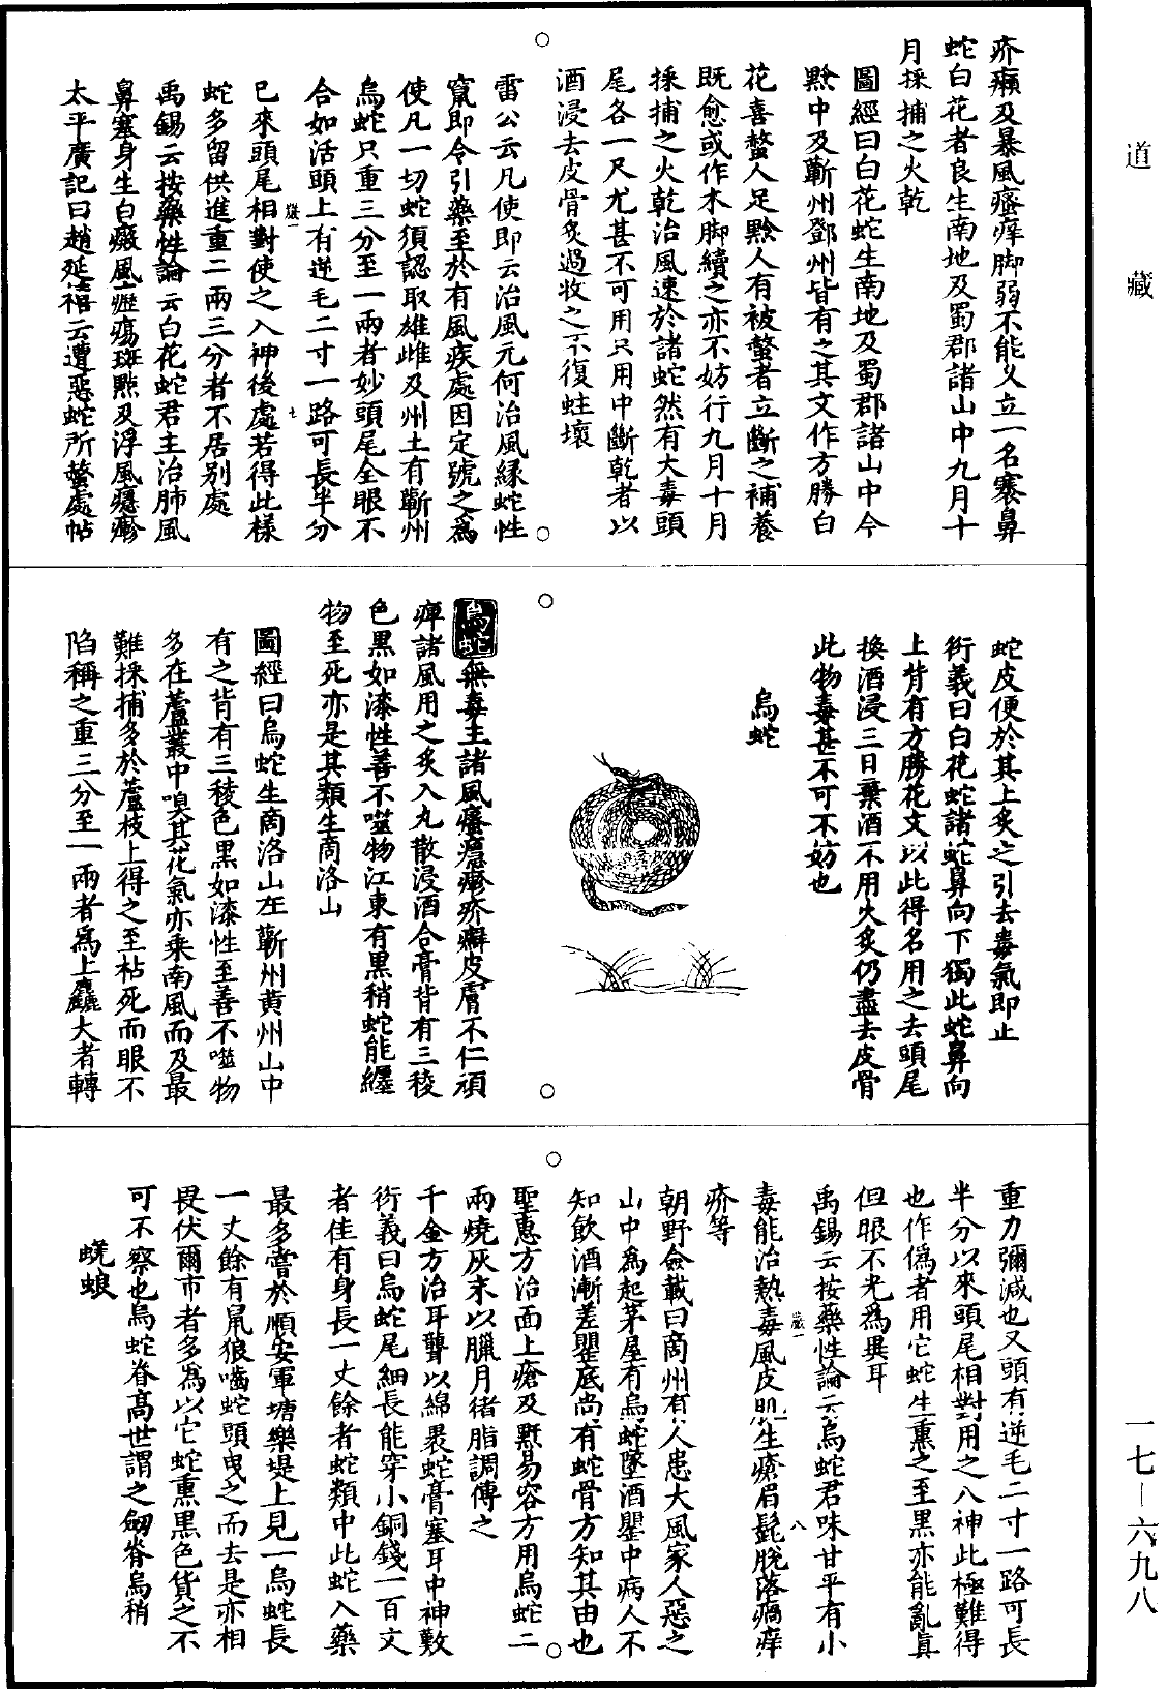 道藏
疥癩及暴風瘙痒脚弱不能久立一名褰鼻
蛇白花者良生南地及蜀郡諸山中九月十
月採捕之火乾
圖經曰白花蛇生南地及蜀郡諸山中今
黔中及蘄州鄧州皆有之其文作方勝白
花喜螫人足黔人有被螫者立斷之補養
既愈或作木脚續之亦不妨行九月十月
採捕之火乾治風速於諸蛇然有大毒頭
尾各一尺尤甚不可用只用中斷乾者以
酒浸去皮骨炙過收之不復蛀壞
雷公云凡使即云治風元何治風緣蛇性
竄即令引藥至於有風疾處因定號之為
使凡一切蛇須認取雄雌及州土有蘄州
烏蛇只重三分至一兩者妙頭尾全眼不
合如活頭上有逆毛二寸一路可長半分
已來頭尾相對使之入神後處若得此樣
蛇多留供進重二兩三分者不居别處
禹錫云按藥性論云白花蛇君主治肺風
鼻塞身生白癜風癧瘍斑點及浮風癮疹
太平廣記曰趙延禧云遭惡蛇所螫處帖
蛇皮便於其上炙之引去毒氣即止
衍義曰白花蛇諸蛇鼻向下獨此蛇鼻向
上背有方勝花文以此得名用之去頭尾
換酒浸三日棄酒不用火炙仍盡去皮骨
此物毒甚不可不妨也
烏蛇
烏蛇無毒主諸風瘙癮疹疥癬皮膚不仁頑
痺諸風用之炙入丸散浸酒合膏背有三稜
色黑如漆性善不噬物江東有黑稍蛇能纏
物至死亦是其類生商洛山
圖經曰烏蛇生商洛山在蘄州黄州山中
有之背有三稜色黑如漆性至善不噬物
多在蘆叢中嗅其花氣亦乘南風而及最
難採捕多於蘆枝上得之至枯死而眼不
陷稱之重三分至一兩者為上麤大者轉
重力彌減也又頭有逆毛二寸一路可長
半分以來頭尾相對用之入神此極難得
也作偽者用它蛇生熏之至黑亦能亂真
但眼不光為異耳
禹錫云按藥性論云烏蛇君味甘平有小
毒能治熱毒風皮肌生瘡眉髭脫落瘑痒
疥等
朝野僉載曰商州有人患大風家人惡之
山中為起茅屋有烏蛇墜酒罌中病人不
知飲酒漸差罌底尚有蛇骨方知其由也
聖惠方治面上瘡及䵟易容方用烏蛇二
兩燒灰末以臘月猪脂調傳之
千金方治耳聾以綿裹蛇膏塞耳中神數
衍義曰烏蛇尾細長能穿小銅錢一百文
者佳有身長一丈餘者蛇類中此蛇入藥
最多嘗於順安軍塘樂堤上見一烏蛇長
一丈餘有鼠狼嚙蛇頭曳之而去是亦相
畏伏爾市者多為以它蛇熏黑色貨之不
可不察也烏蛇脊高世謂之劒脊烏稍
蜣蜋
一七—六九八